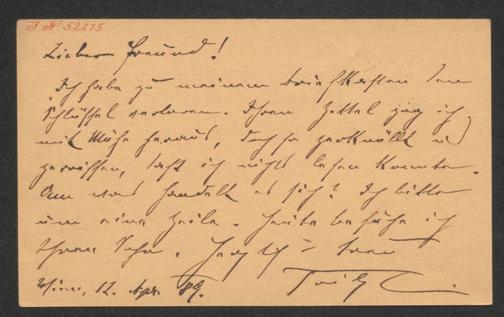 I N 52275
Lieber Freund!
Ich habe zu meinem Briefkasten den
Schlüssel verloren. Ihren Zettel zog ich
mit Mühe heraus, doch so zerknüllt u
zerrissen, daß ich nichts lesen konnte.
Um was handelt es sich? Ich bitte
um eine Zeile. Heute besuche ich
Ihren Sohn. Herzlich
Wien, 12. Apr. 89.